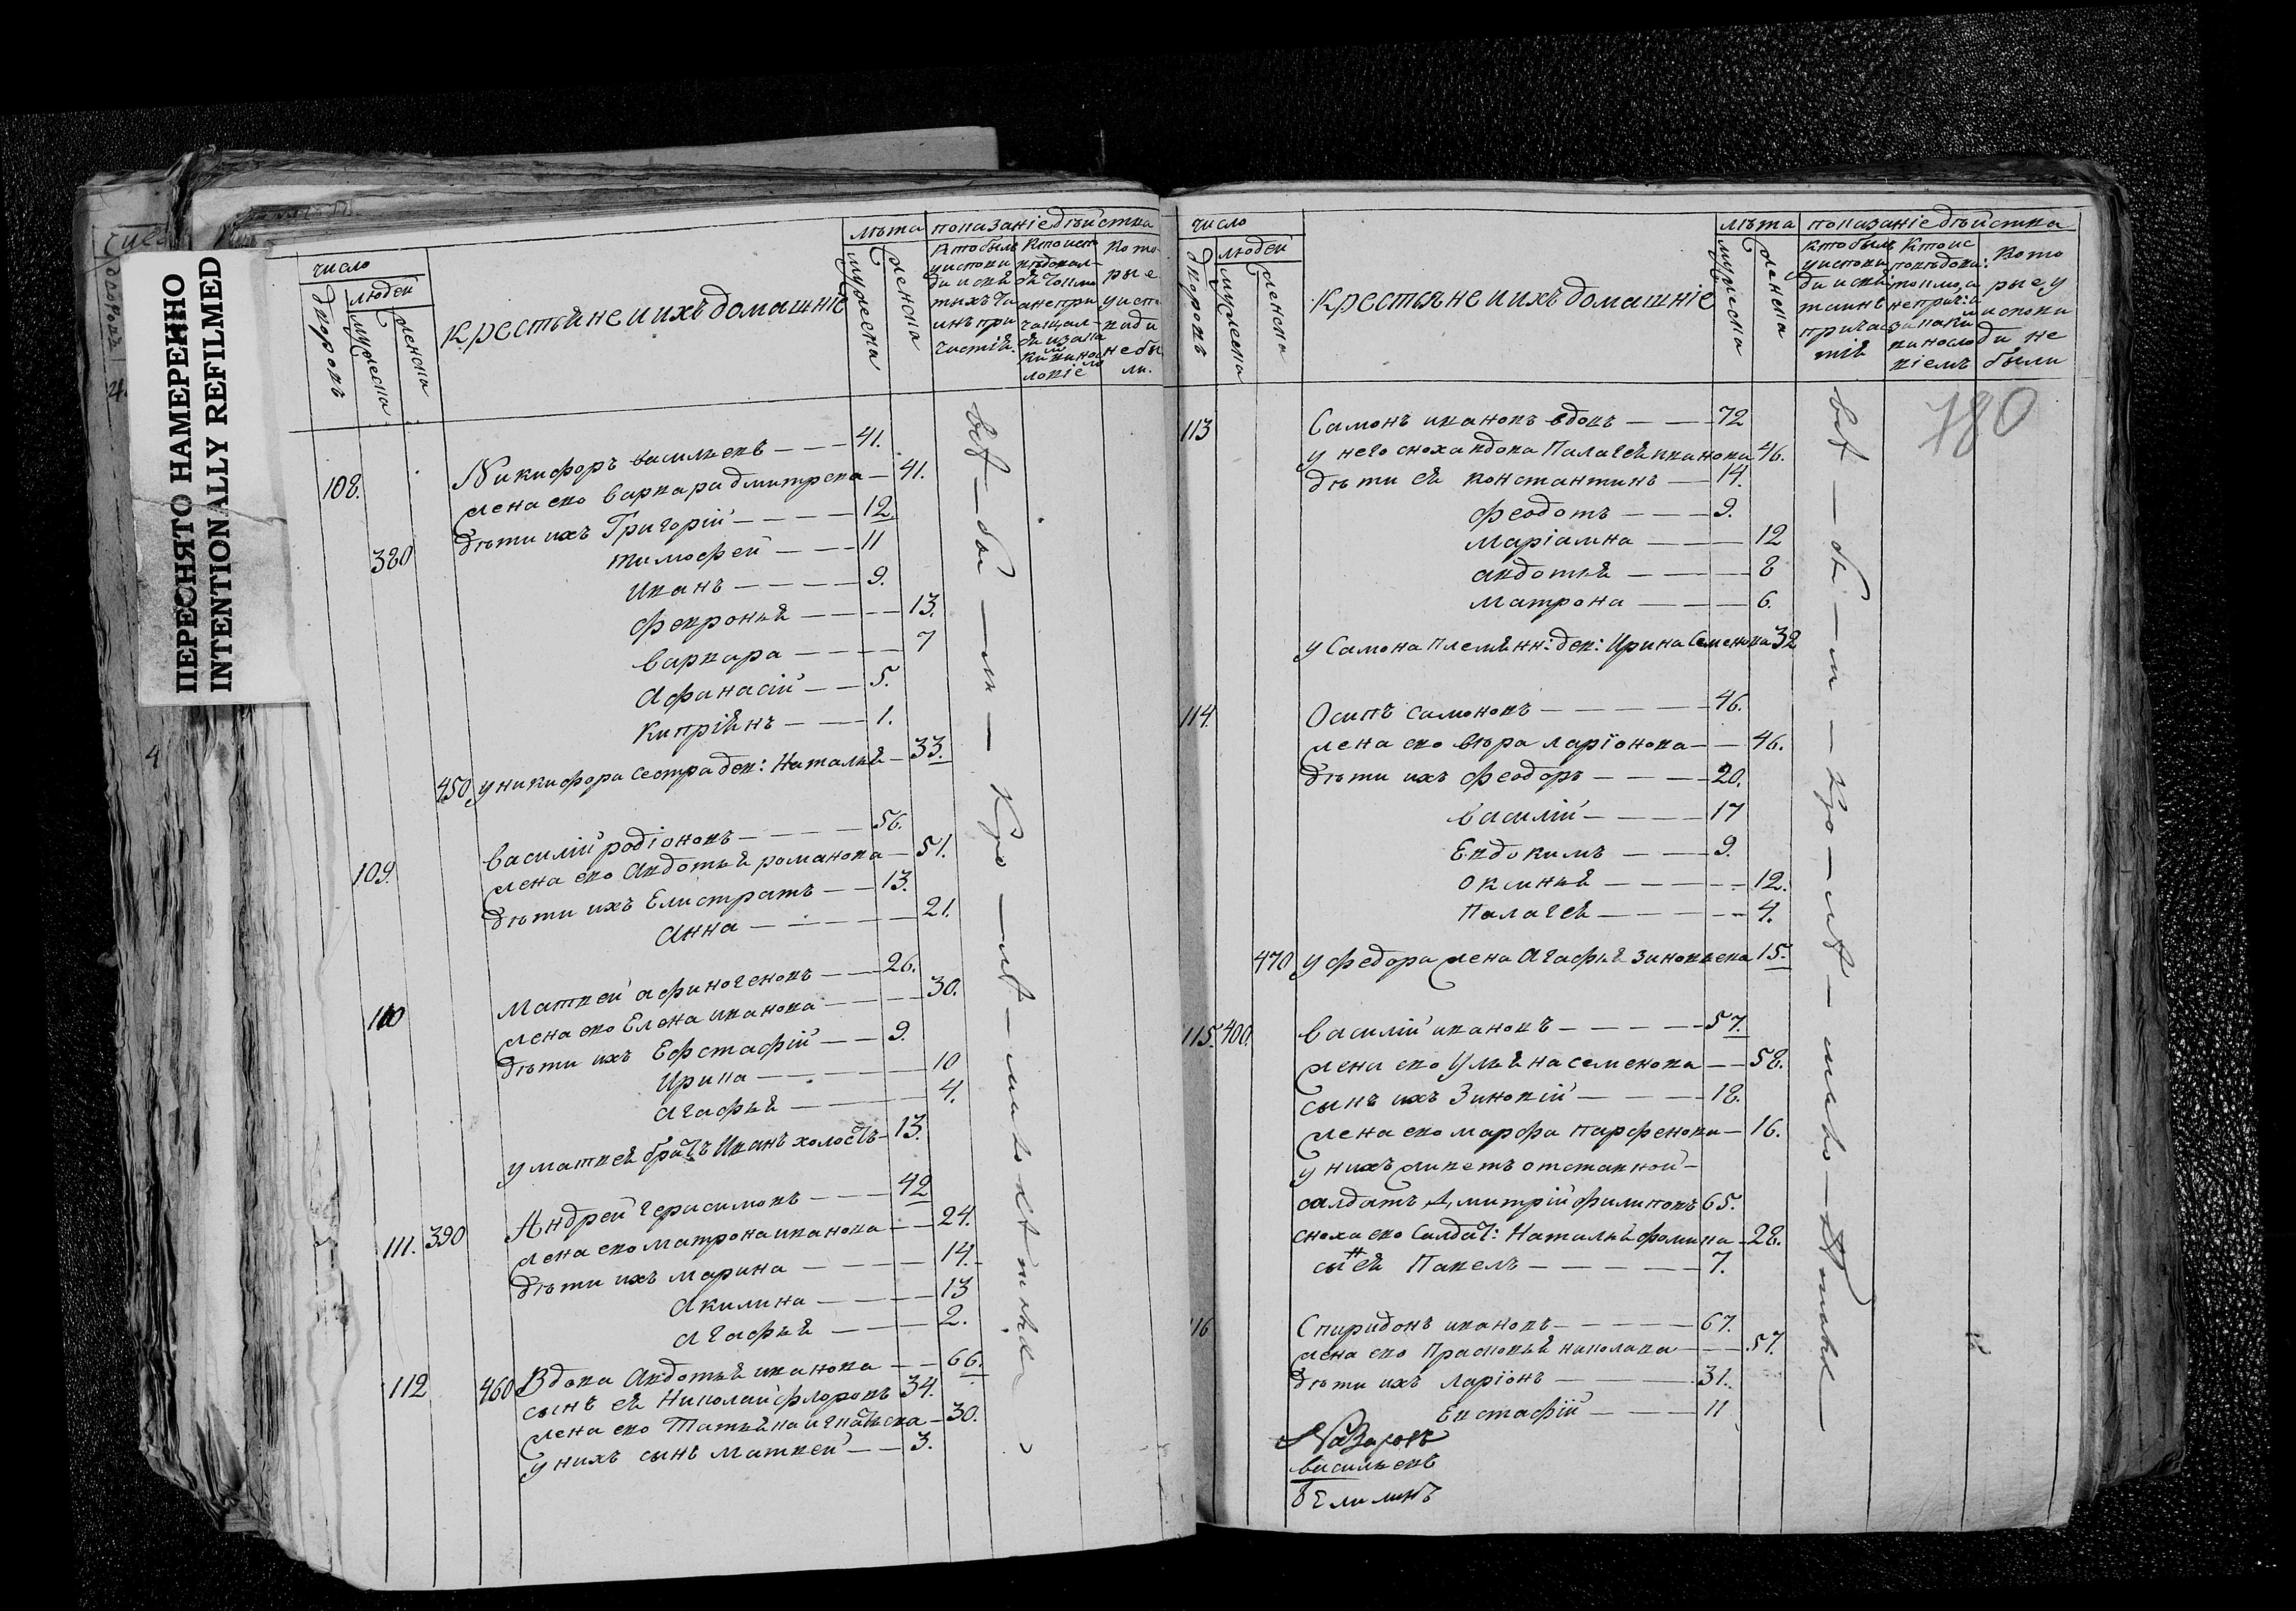 ПЕРЕСНЯТО НАМЕРЕННО
INTENTIONALLY REFILMED
число
дворовъ
людей
мужеска
женска
Крестьяне и ихъ домашніе
лѣта
мужеска
женска
показаніе дѣйства
Кто былъ
у испове
ди и свя
тыхъ та
инъ при
частія.
Кто испо
вѣдовал
ся токмо
а не при
чащал
ся и за ка
ки винос
ловіе
кото
рые
у испо
веди
не бы
ли.
108. Никифоръ васильевъ — 41.
жена ево варвара дмитрева — 41.
дѣти ихъ Григорій — 12.
380 тимофей — 11
иванъ — 9.
февронья — 13.
варвара — 7
Афанасій — 5.
Кипріянъ — 1.
450 у никифора сестра дев: Наталья — 33.
109. василій родіоновъ — 56.
жена ево Авдотья романова — 51.
дѣти ихъ Елистратъ — 13.
Анна — 21.
110 матвей афиногеновъ — 26.
жена ево Елена иванова — 30.
дѣти ихъ Ефстафій — 9.
Ирина — 10
агафья — 4.
у матвея братъ Иванъ холостъ — 13.
111. 390 Андрей герасимовъ — 42
жена ево матрона иванова — 24.
дѣти ихъ марина — 14.
Акилина — 13
агафья — 2.
112 460 Вдова Авдотья иванова — 66.
сынъ ея Николай флоровъ 34.
жена ево Татьяна игнатьева — 30.
у нихъ сынъ матвей — 3.
число
дворовъ
людей
мужеска
женска
Крестьяне и ихъ домашніе
лѣта
мужеска
женска
показаніе дѣйства
Кто былъ
у испове
ди и свя
таинъ
прича
тія
Кто ис
повѣдов:
токмо, а
не прич:
за каки
виносло
віемъ
кото
рые у
испове
ди не
были
780
113 Самонъ ивановъ вдовъ — 72
у него сноха вдова Палагея иванова 46.
дѣти ея константинъ — 14.
феодотъ — 9.
маріамна — 12
авдотья — 8
матрона — 6.
у Самона племянн: дев: Ирина Семенова 32
114. Осипъ самоновъ — 46.
жена ево вѣра ларіонова — 46.
дѣти ихъ феодоръ — 20.
василій — 17
Евдокимъ — 9.
Оксинья — 12.
Палагея — 4.
470 у федора жена Агафья зиновьева 15.
115. 400. василій ивановъ — 57.
жена ево Ульяна семенова — 58.
сынъ ихъ Зиновій — 18.
жена ево марфа парфенова — 16.
у нихъ живетъ отставной
салдатъ Дмитрій филиповъ 65.
сноха ево Салдат: Наталья фомина — 28.
сынъ ея Павелъ — 7.
116 Спиридонъ ивановъ — 67.
жена ево Прасковья николава — 57.
дѣти ихъ ларіонъ — 31.
Евстафій — 11
Назаровъ
васильевъ